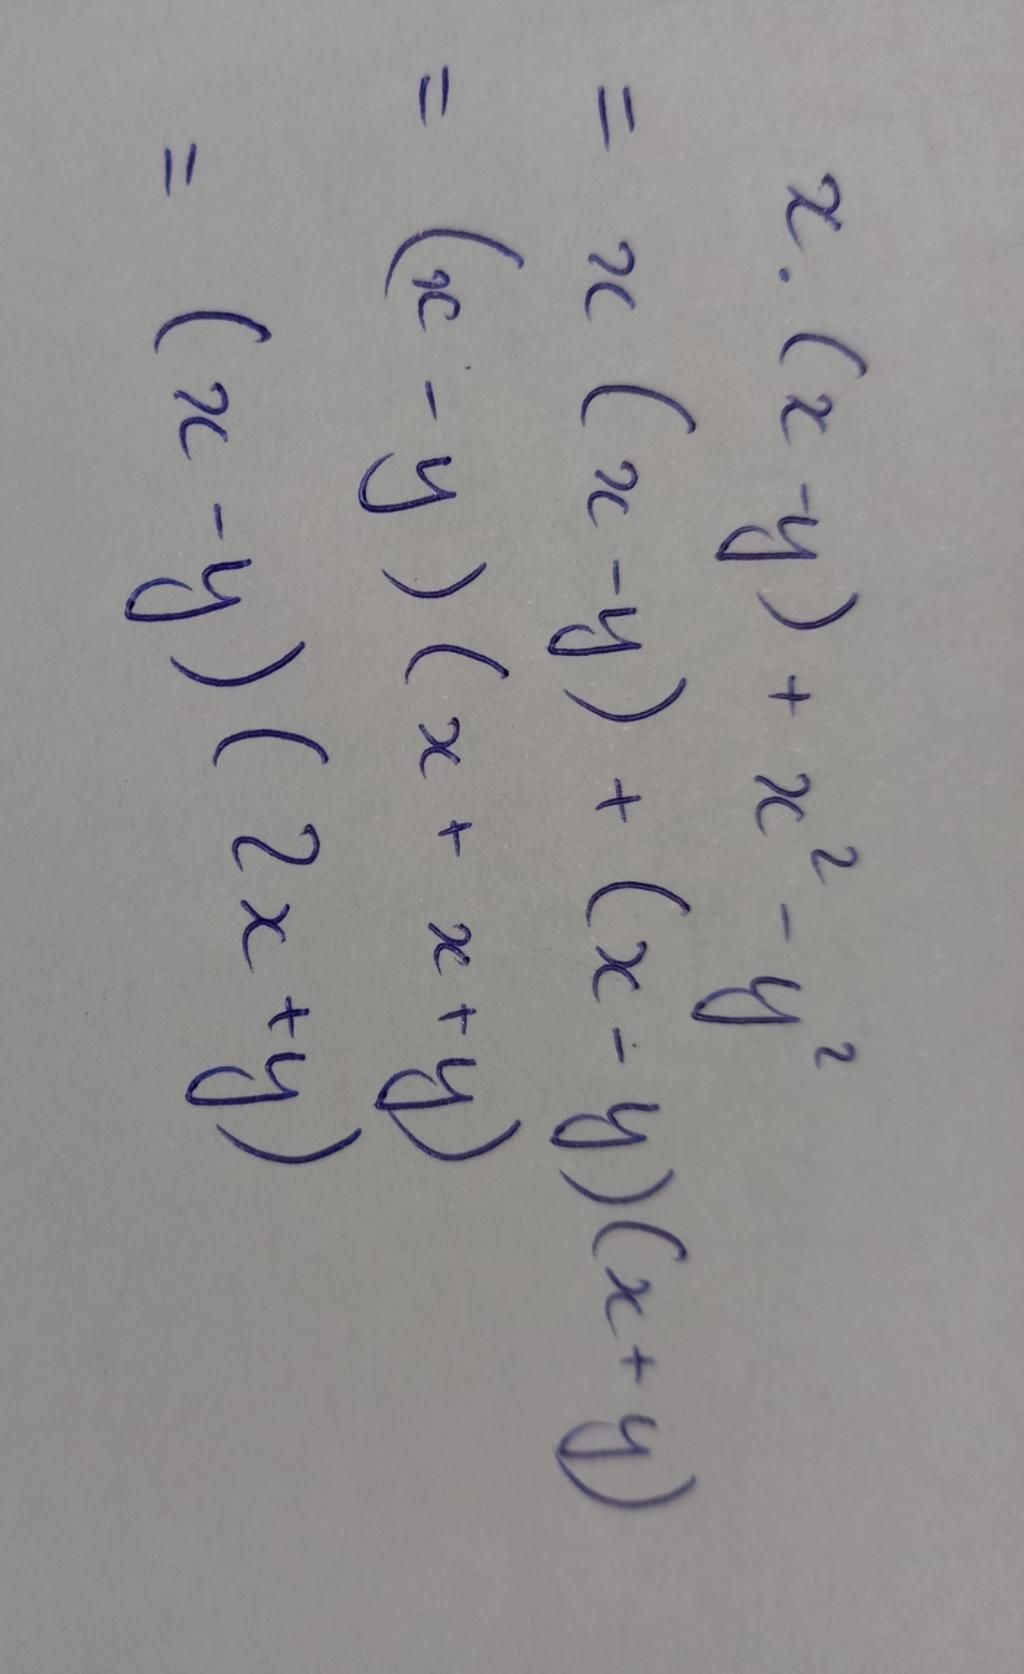 x.(x-y)+x²-y²
= x(x-y)+(x-y)(x+y)
= (x-y)(x+x+y)
= (x-y)(2x+y)